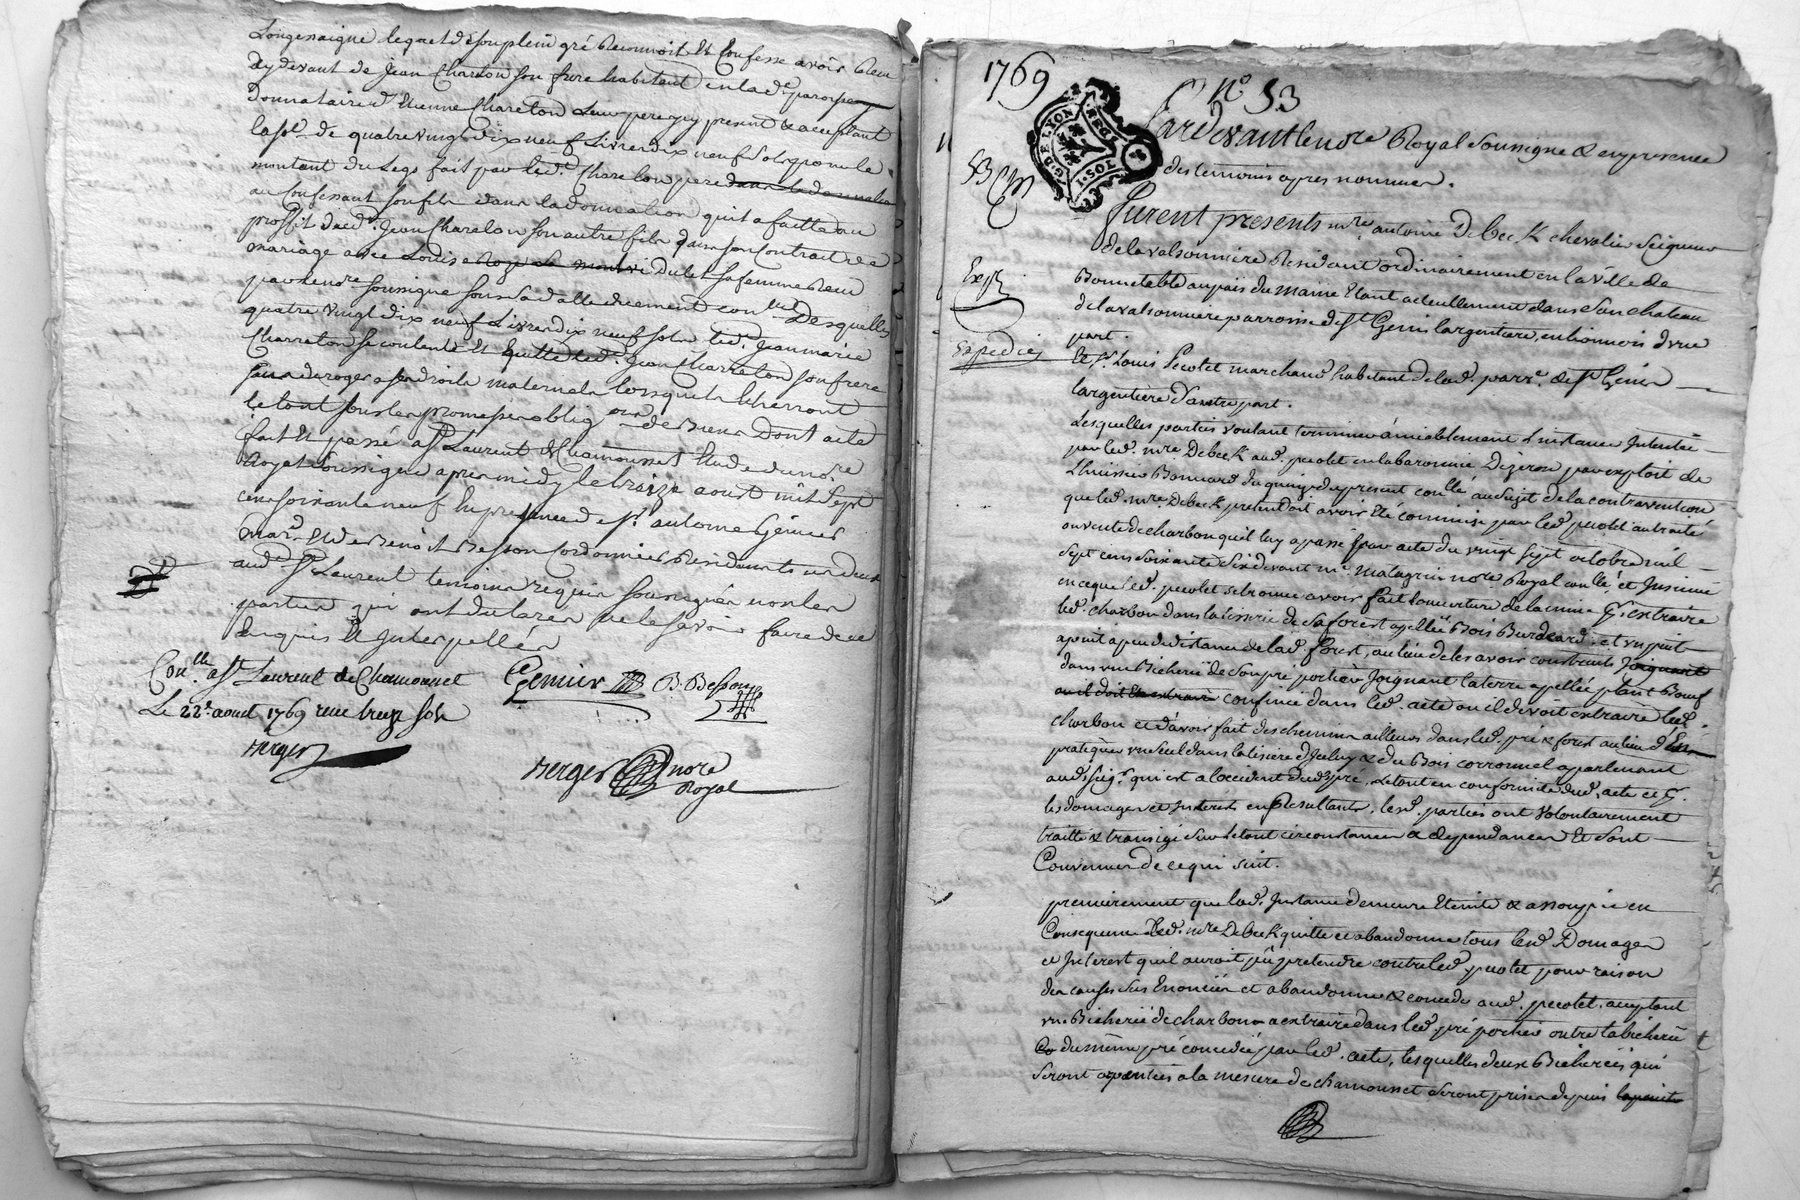 Longessaigne lequel de son plein gré Reconnoit Et Confesse avoir Reçu
cy devant de Jean Charreton son frere habitant en lad.e paroisse
Donnataire d'Etienne Chareton Leur pere icy present & acceptant
la so.e de quatre vingt dix neuf Livres dix neuf sols pour le
montant du Legs fait par led. Chareton pere dans la donnation
au Confessant son fils dans la donnation qu'il a faitte au
proffit dud. Jean Chareton son autre fils dans son Contrat de
mariage avec Louise sa femme Reçu
par le no.re soussigné
quatre vingt dix neuf Livres dix neuf sols led. Jean marie
Charreton se contente Et quitte led. Jean Charreton son frere
sans deroger a ses droits maternels lorsqu'ils echerront
le tout sous les promesses oblig.ons de Biens Dont acte
fait Et passé a S.t Laurent de Chamousset Etude du no.re
Royal soussigné apres midy le treize aoust mil sept
cens soixante neuf En presence de S.r antoine Génier
mar.d Et de Benoît Besson Cordonnier Residants
aud. S.t Laurent temoins requis soussignés non les
parties qui ont declarés ne le savoir faire de ce
Enquis Et Interpellés
Con.lle a S.t Laurent de Chamousset
Le 22.e aoust 1769 reçu treize sols
Berger
Génier B. Besson
Berger no.re
Royal
1769
N.o 53
G. DE LYON
1. SOL
53
Par devant le no.re Royal soussigné & en presence
des temoins apres nommés.
Furent presents m.re antoine Debeck chevalier Seigneur
de la valsonniere Residant ordinairement en la ville de
Bonnetable au païs du maine Etant actuellement dans son chateau
de la valsonniere parroisse de S.t Genis largentiere, en lionnois d'une
part.
Exp.
Expediée
Et S.r Louis Pecolet marchand habitant de lad. parr.e de S.t Genis
largentiere d'autre part.
Lesquelles parties voulant terminer amiablement L'instance Intentée
par led. m.re Debeck aud. pecolet en la baronnie par exploit de
L'huissier Bonnard du quinze du present con.llé au sujet de la contravention
que led. m.re Debeck pretendoit avoir Eté commise par led. pecolet au traité
ou vente de charbon qu'il luy a passé par acte du vingt sept octobre mil
sept cens soixante Six devant m.e Malagrin no.re Royal con.llé et Insinué
en ce que led. pecolet se trouve avoir fait l'ouverture de la mine p.r extraire
led. charbon dans la lisiere de sa forest apellée Bois Burdeard, et un puit
a peu de distance de lad. forest, au lieu de les avoir construits Joignant
dans une Bicherée de son pré portier Joignant la terre apellée plant Bœuf
ou il doit Etre extrait confinée dans led. acte ou il devoit extraire led.
charbon et d'avoir fait des chemins ailleurs dans led. pré & forest au lieu d'En
pratiquer un seul dans la lisiere d'Iceluy & du Bois corronnel apartenant
aud. Seig.r qui est a l'occident dud. pré, Le tout en conformité dud. acte et p.r
les domages et Interets en Resultants, lesd. parties ont volontairement
traitté & transigé sur le tout circonstances & dependances Et sont
Convenues de ce qui suit.
premierement que lad. Instance demeure Eteinte & assoupie en
Consequence Led. m.re Debeck quitte et abandonne tous lesd. Domages
et Interest qu'il auroit pû pretendre contre led. pecolet pour raison
des causes sus Enoncées et abandonne & concede aud. pecolet acceptant
une Bicherée de charbon a extraire dans led. pré portier outre la bicherée
du même pré concedée par led. acte, lesquelles deux Bicherées qui
seront arpentées a la mesure de chamousset seront prises depuis